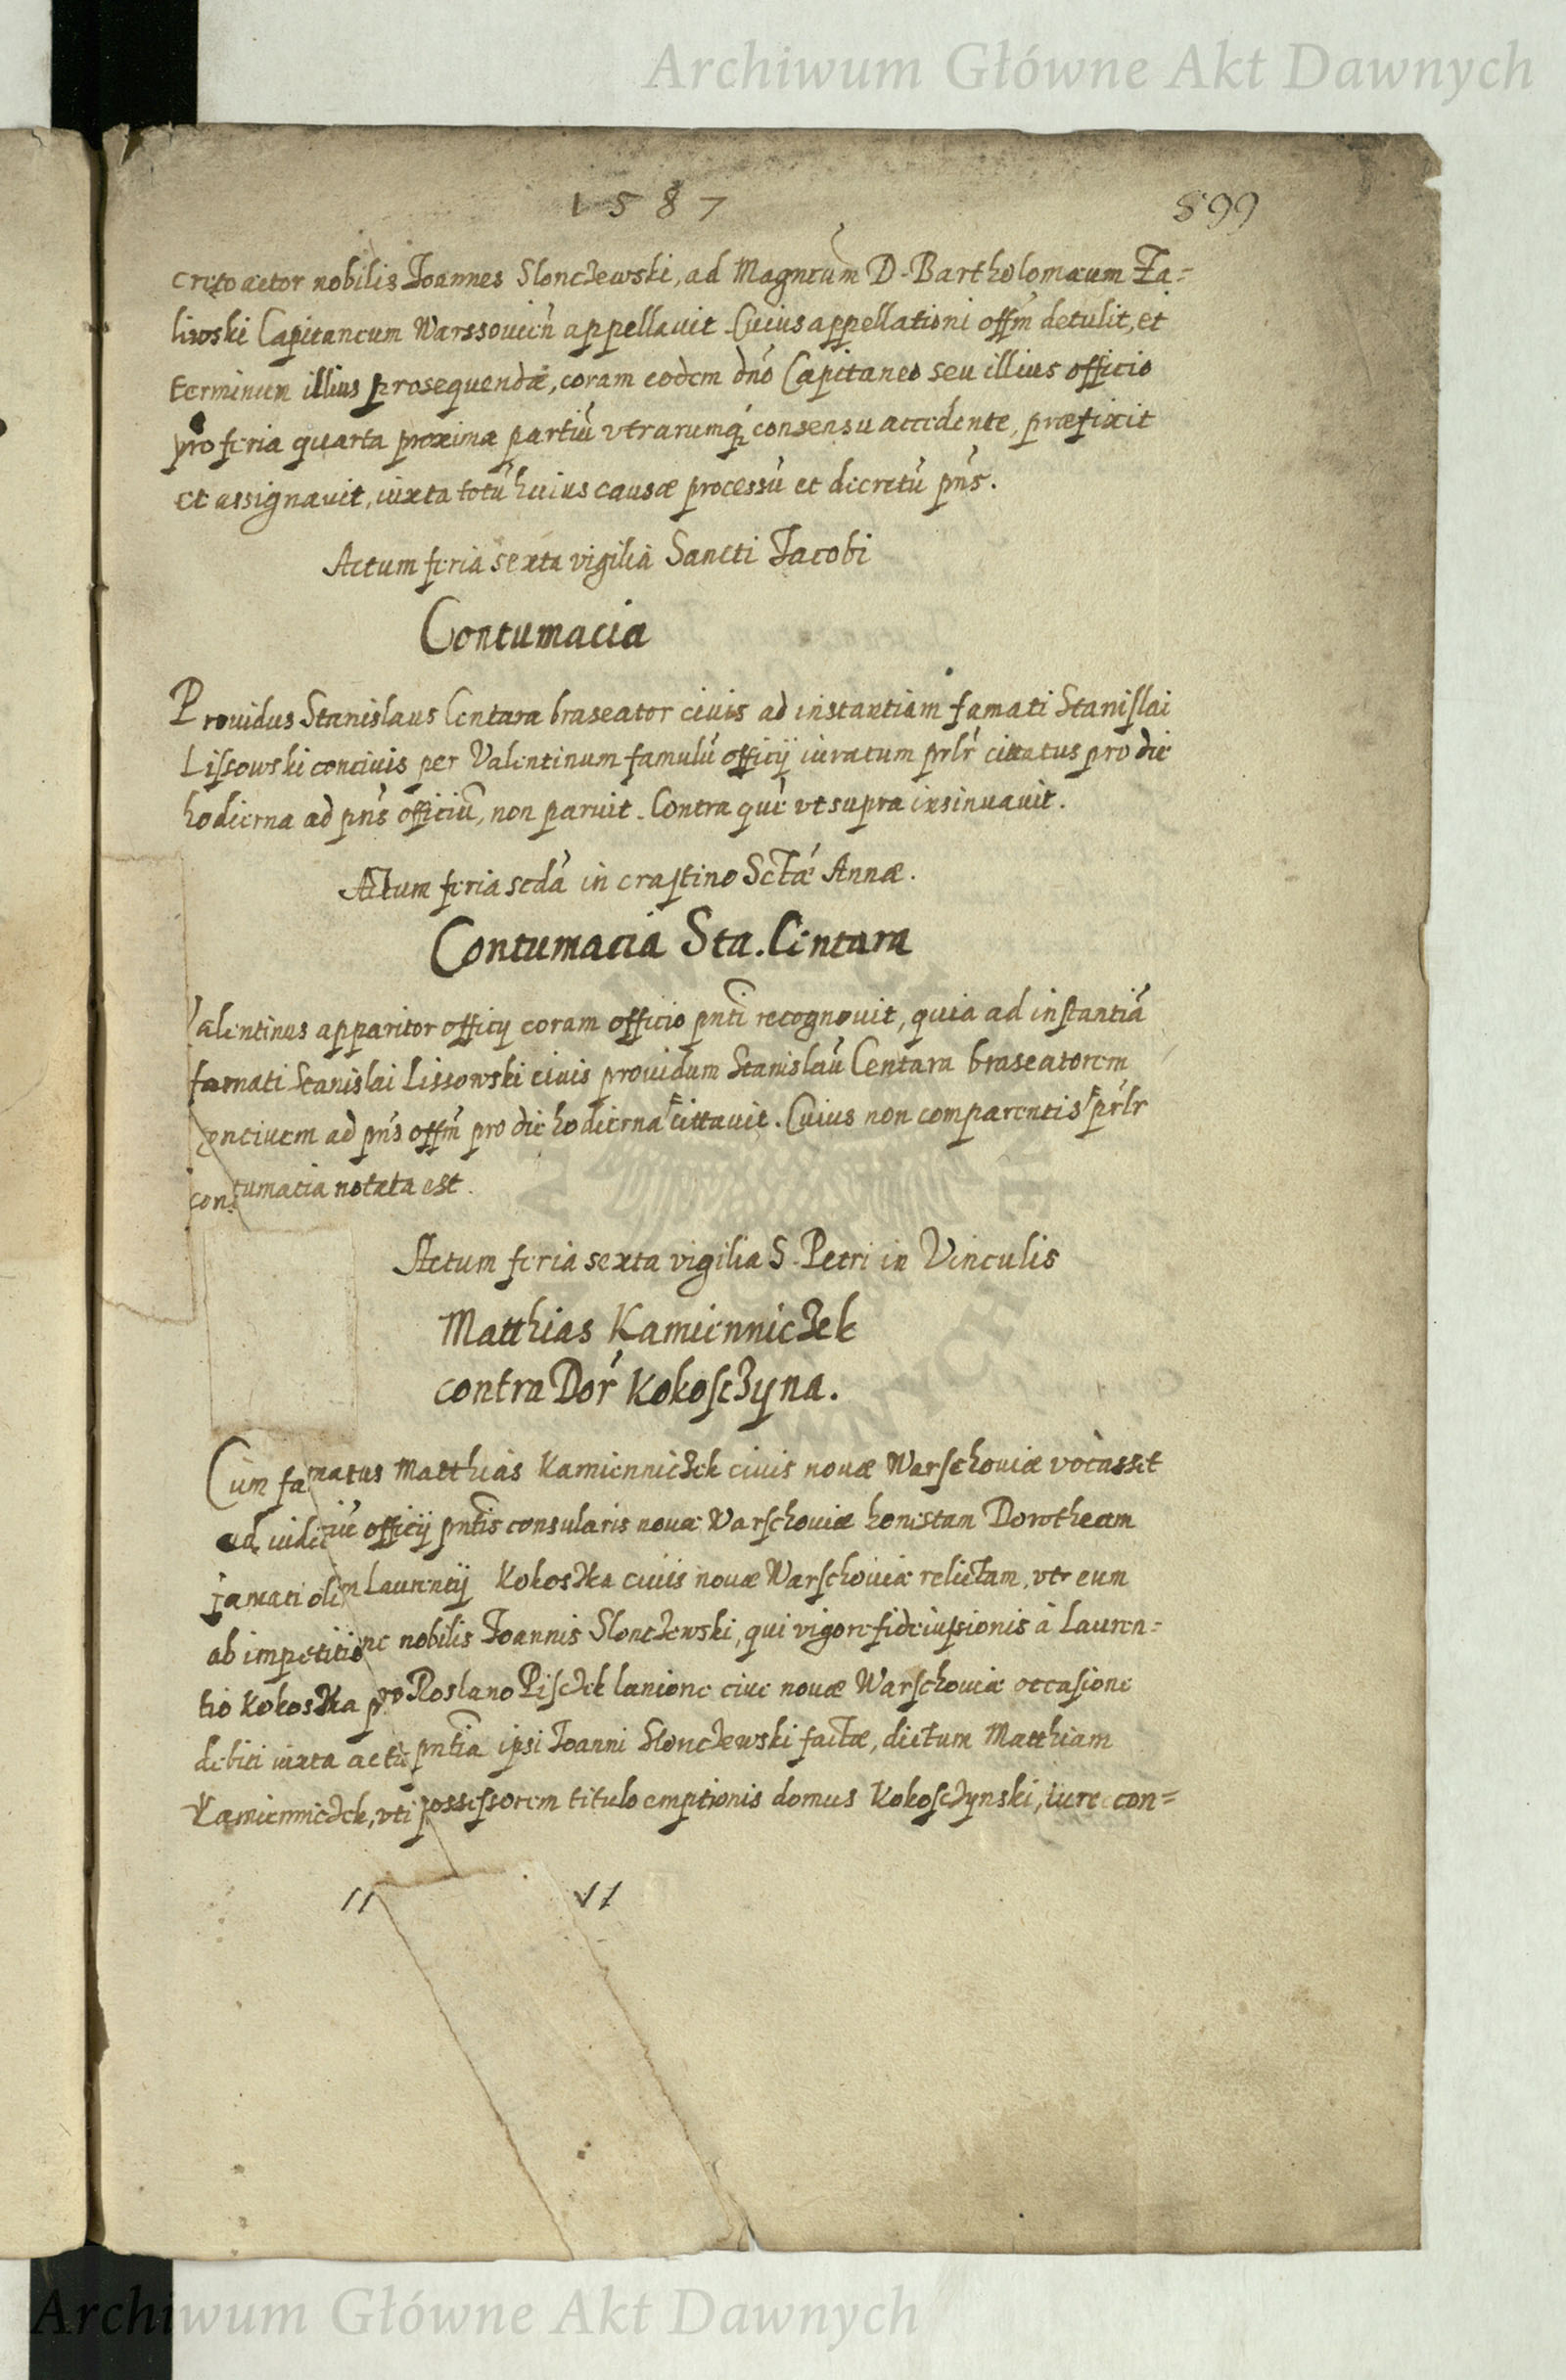 Archiwum Główne Akt Dawnych
1587
899
creto actor nobilis Joannes Slonczewski, ad Magncũm D. Bartholomæum Za=
liwski Capitaneum Warssouień appellauit. Cuius appellationi offm̃ detulit, et
terminum illius prosequendæ, coram eodem dnõ Capitaneo seu illius officio
pro feria quarta proxima partiũ vtrarumq; consensu accedente, præfixit
et assignauit, iuxta totũ huius causæ processũ et decretũ pñs.
Actum feria sexta vigilia Sancti Jacobi
Contumacia
Prouidus Stanislaus Centara braseator ciuis ad instantiam famati Stanislai
Lissowski conciuis per Valentinum famulũ officij iuratum prlr̃ cittatus pro die
hodierna ad pñs officiũ, non paruit. Contra quẽ vt supra insinuauit.
Actum feria scdã in crastino Sctæ̃ Annæ.
Contumacia Sta. Centara
Valentinus apparitor officij coram officio pnti recognouit, quia ad instantiã
famati Stanislai Lissowski ciuis prouidum Stanislaũ Centara braseatorem
conciuem ad pñs offm̃ pro die hodierna cittauit. Cuius non comparentis prlr̃
contumacia notata est.
Actum feria sexta vigilia S. Petri in Vinculis
Matthias Kamienniczek
contra Dor̃ Kokosczyna.
Cum famatus Matthias Kamienniczek ciuis nouæ Warschouiæ vocasset
ad iudiciũ officij pntis consularis nouæ Warschouiæ honestam Dorotheam
famati olim Laurentij Kokoszka ciuis nouæ Warschouiæ relictam, vt eum
ab impetitione nobilis Joannis Slonczewski, qui vigore fideiussionis à Lauren=
tio Kokoszka pro Roslano Pisczek lanione ciue nouæ Warschouiæ occasione
debiti iuxta acta pntia ipsi Joanni Slonczewski factæ, dictum Matthiam
Kamienniczek, vti possessorem titulo emptionis domus Kokosczynski, iure con=
Archiwum Główne Akt Dawnych